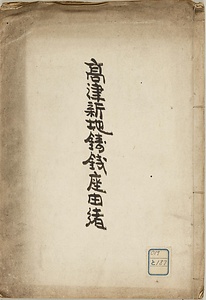 高津新地鋳銭座由緒